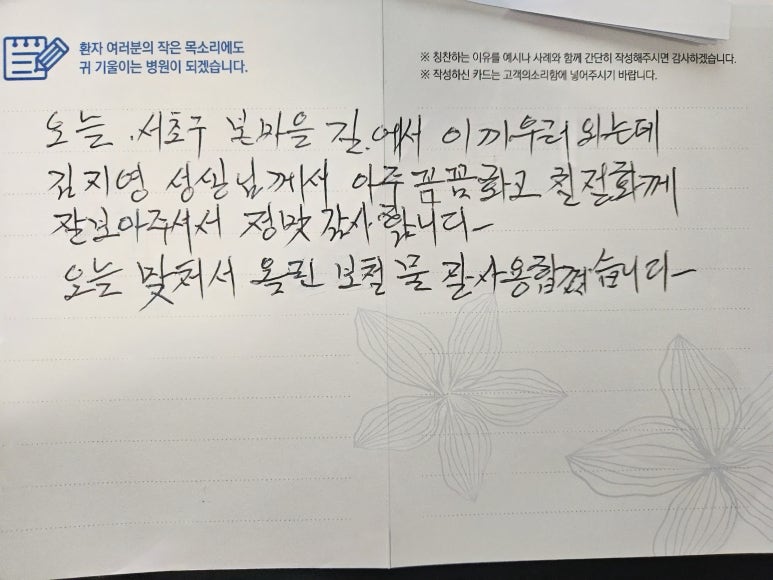 환자 여러분의 작은 목소리에도
귀 기울이는 병원이 되겠습니다.
※ 칭찬하는 이유를 예시나 사례와 함께 간단히 작성해주시면 감사하겠습니다.
※ 작성하신 카드는 고객의소리함에 넣어주시기 바랍니다.
오늘 .서초구 본마을 길.에서 이끼우러 와는데
김지영 성생님께서 아주 꼼꼼화고 친절화게
잘보아주셔서 정맛 감사 합니다-
오늘 맞처서 옳린 보철 물 잘사용합겠습니다-